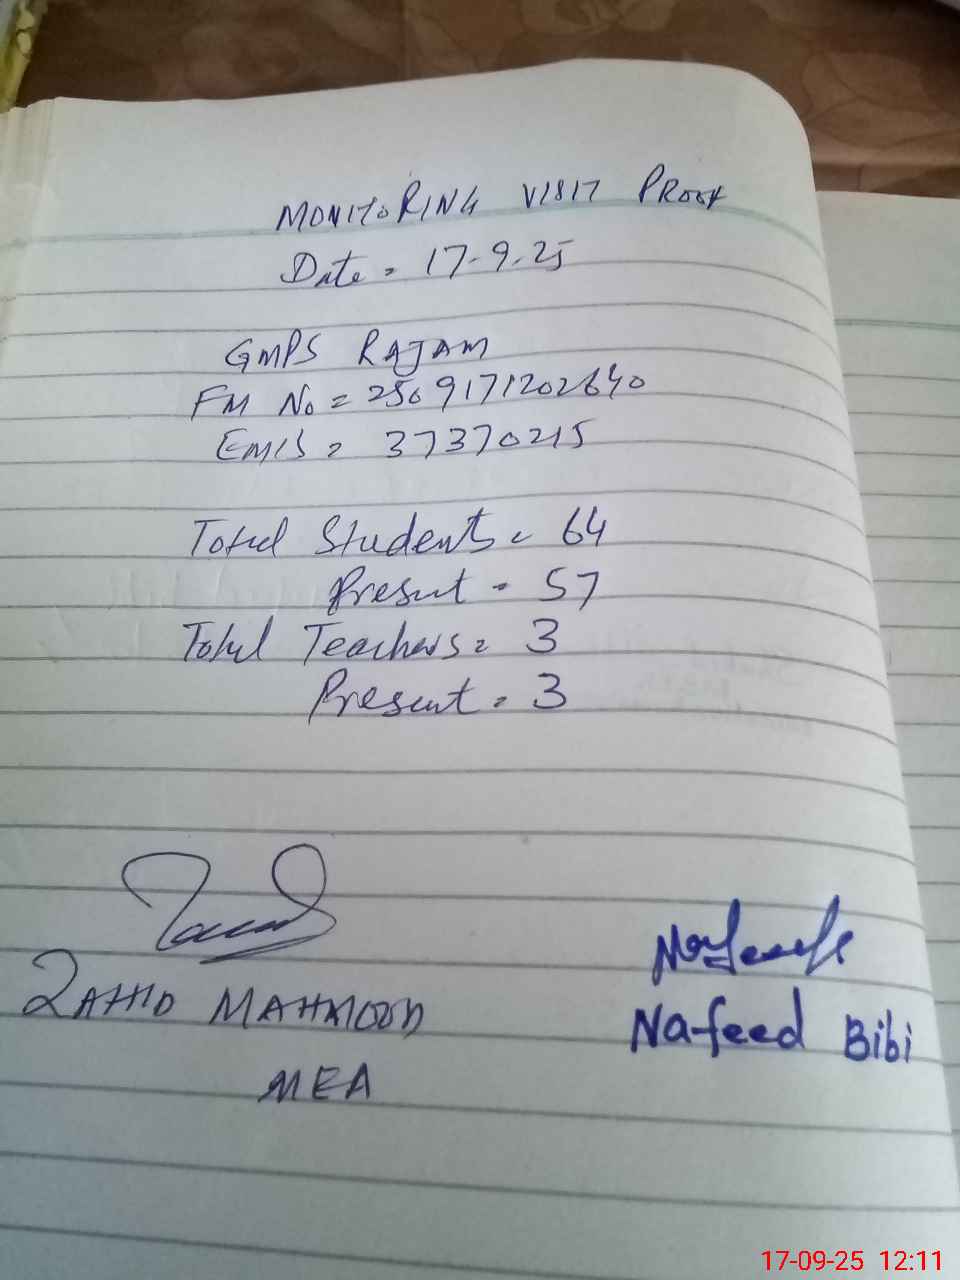 MONITORING VISIT PROOF
Date = 17-9-25
GMPS RAJAM
FM No = 2509171202640
EMIS = 37370215
Total Students = 64
Present = 57
Total Teachers = 3
Present = 3
ZAHID MAHMOOD
MEA
Nafeed Bibi
17-09-25 12:11